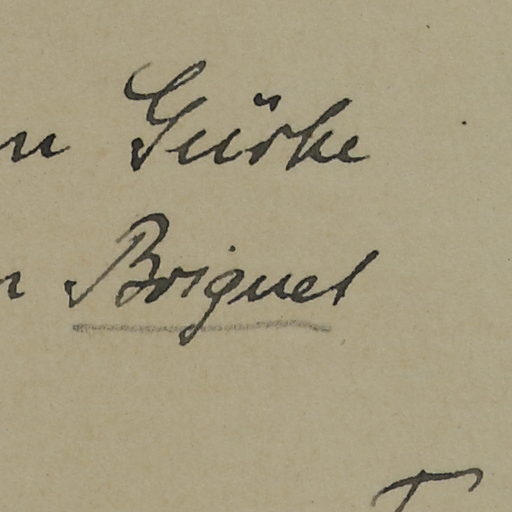 n Gürke
n Briquet